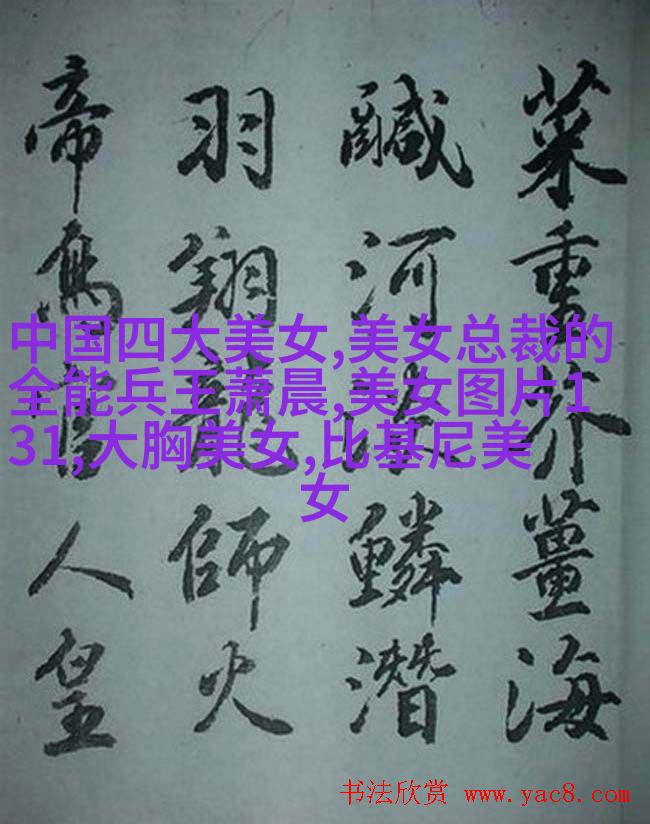 菜重芥薑海
鹹河淡鱗潛
羽翔龍師火
帝鳥官人皇
中国四大美女,美女总裁的
全能兵王萧晨,美女图片1
31,大胸美女,比基尼美
女
书法欣赏 www.yac8.com